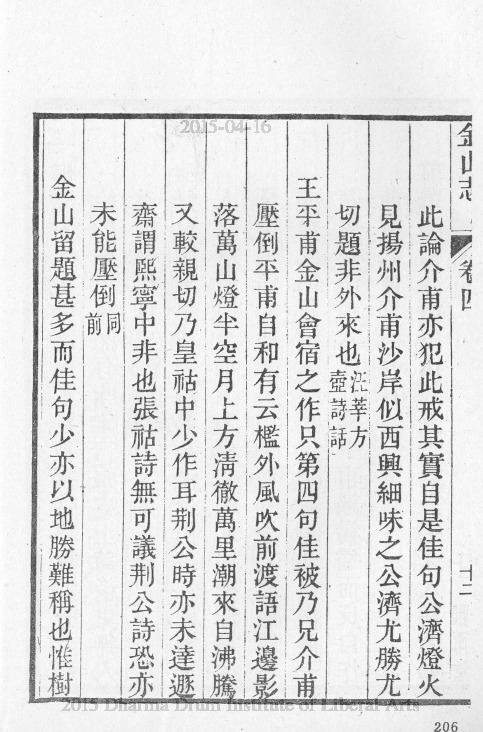 金山志
卷四
十二
此論介甫亦犯此戒其實自是佳句公濟燈火
見揚州介甫沙岸似西興細味之公濟尤勝尤
切題非外來也汪莘方
壺詩話
王平甫金山會宿之作只第四句佳被乃兄介甫
壓倒平甫自和有云檻外風吹前渡語江邊影
落萬山燈半空月上方清徹萬里潮來自沸騰
又較親切乃皇祜中少作耳荆公時亦未達遯
齋謂熙寧中非也張祜詩無可議荆公詩恐亦
未能壓倒同
前
金山留題甚多而佳句少亦以地勝難稱也惟樹
2015-04-16
2015 Dharma Drum Institute of Liberal Arts
206